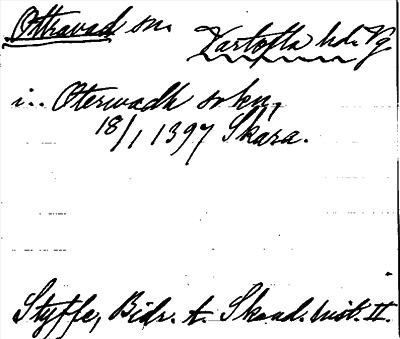 Ottravad sn. Vartofta hd. Vg
i.. Oterwadh sokn,
18/1 1397 Skara.
Styffe, Bidr. t. Skand. hist. II.